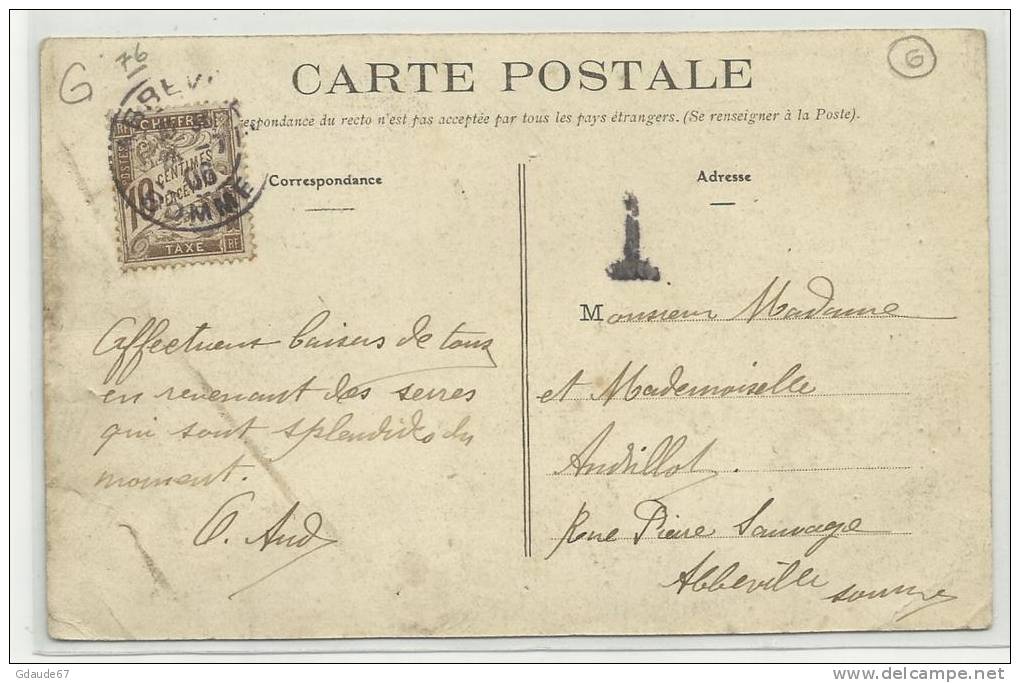 G
76
G
CARTE POSTALE
respondance du recto n'est pas acceptée par tous les pays étrangers. (Se renseigner à la Poste).
CHIFFRE
10 CENTIMES
TAXE
RF
SOMME
06
Correspondance
Adresse
T
Affectueux baisers de tous
en revenant des serres
qui sont splendides du
moment.
Monsieur Madame
et Mademoiselle
Andrillot.
Rue Pierre Sauvage
Abbeville
Somme
Gdaude67
www.delcampe.net